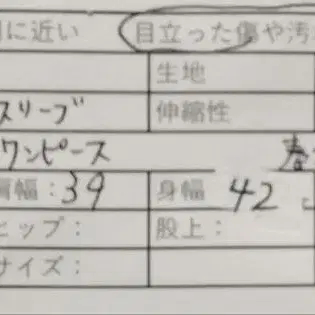 に近い 目立った傷や汚
生地
スリーブ 伸縮性
ワンピース 春
肩幅：39 身幅 42
ヒップ： 股上：
サイズ：